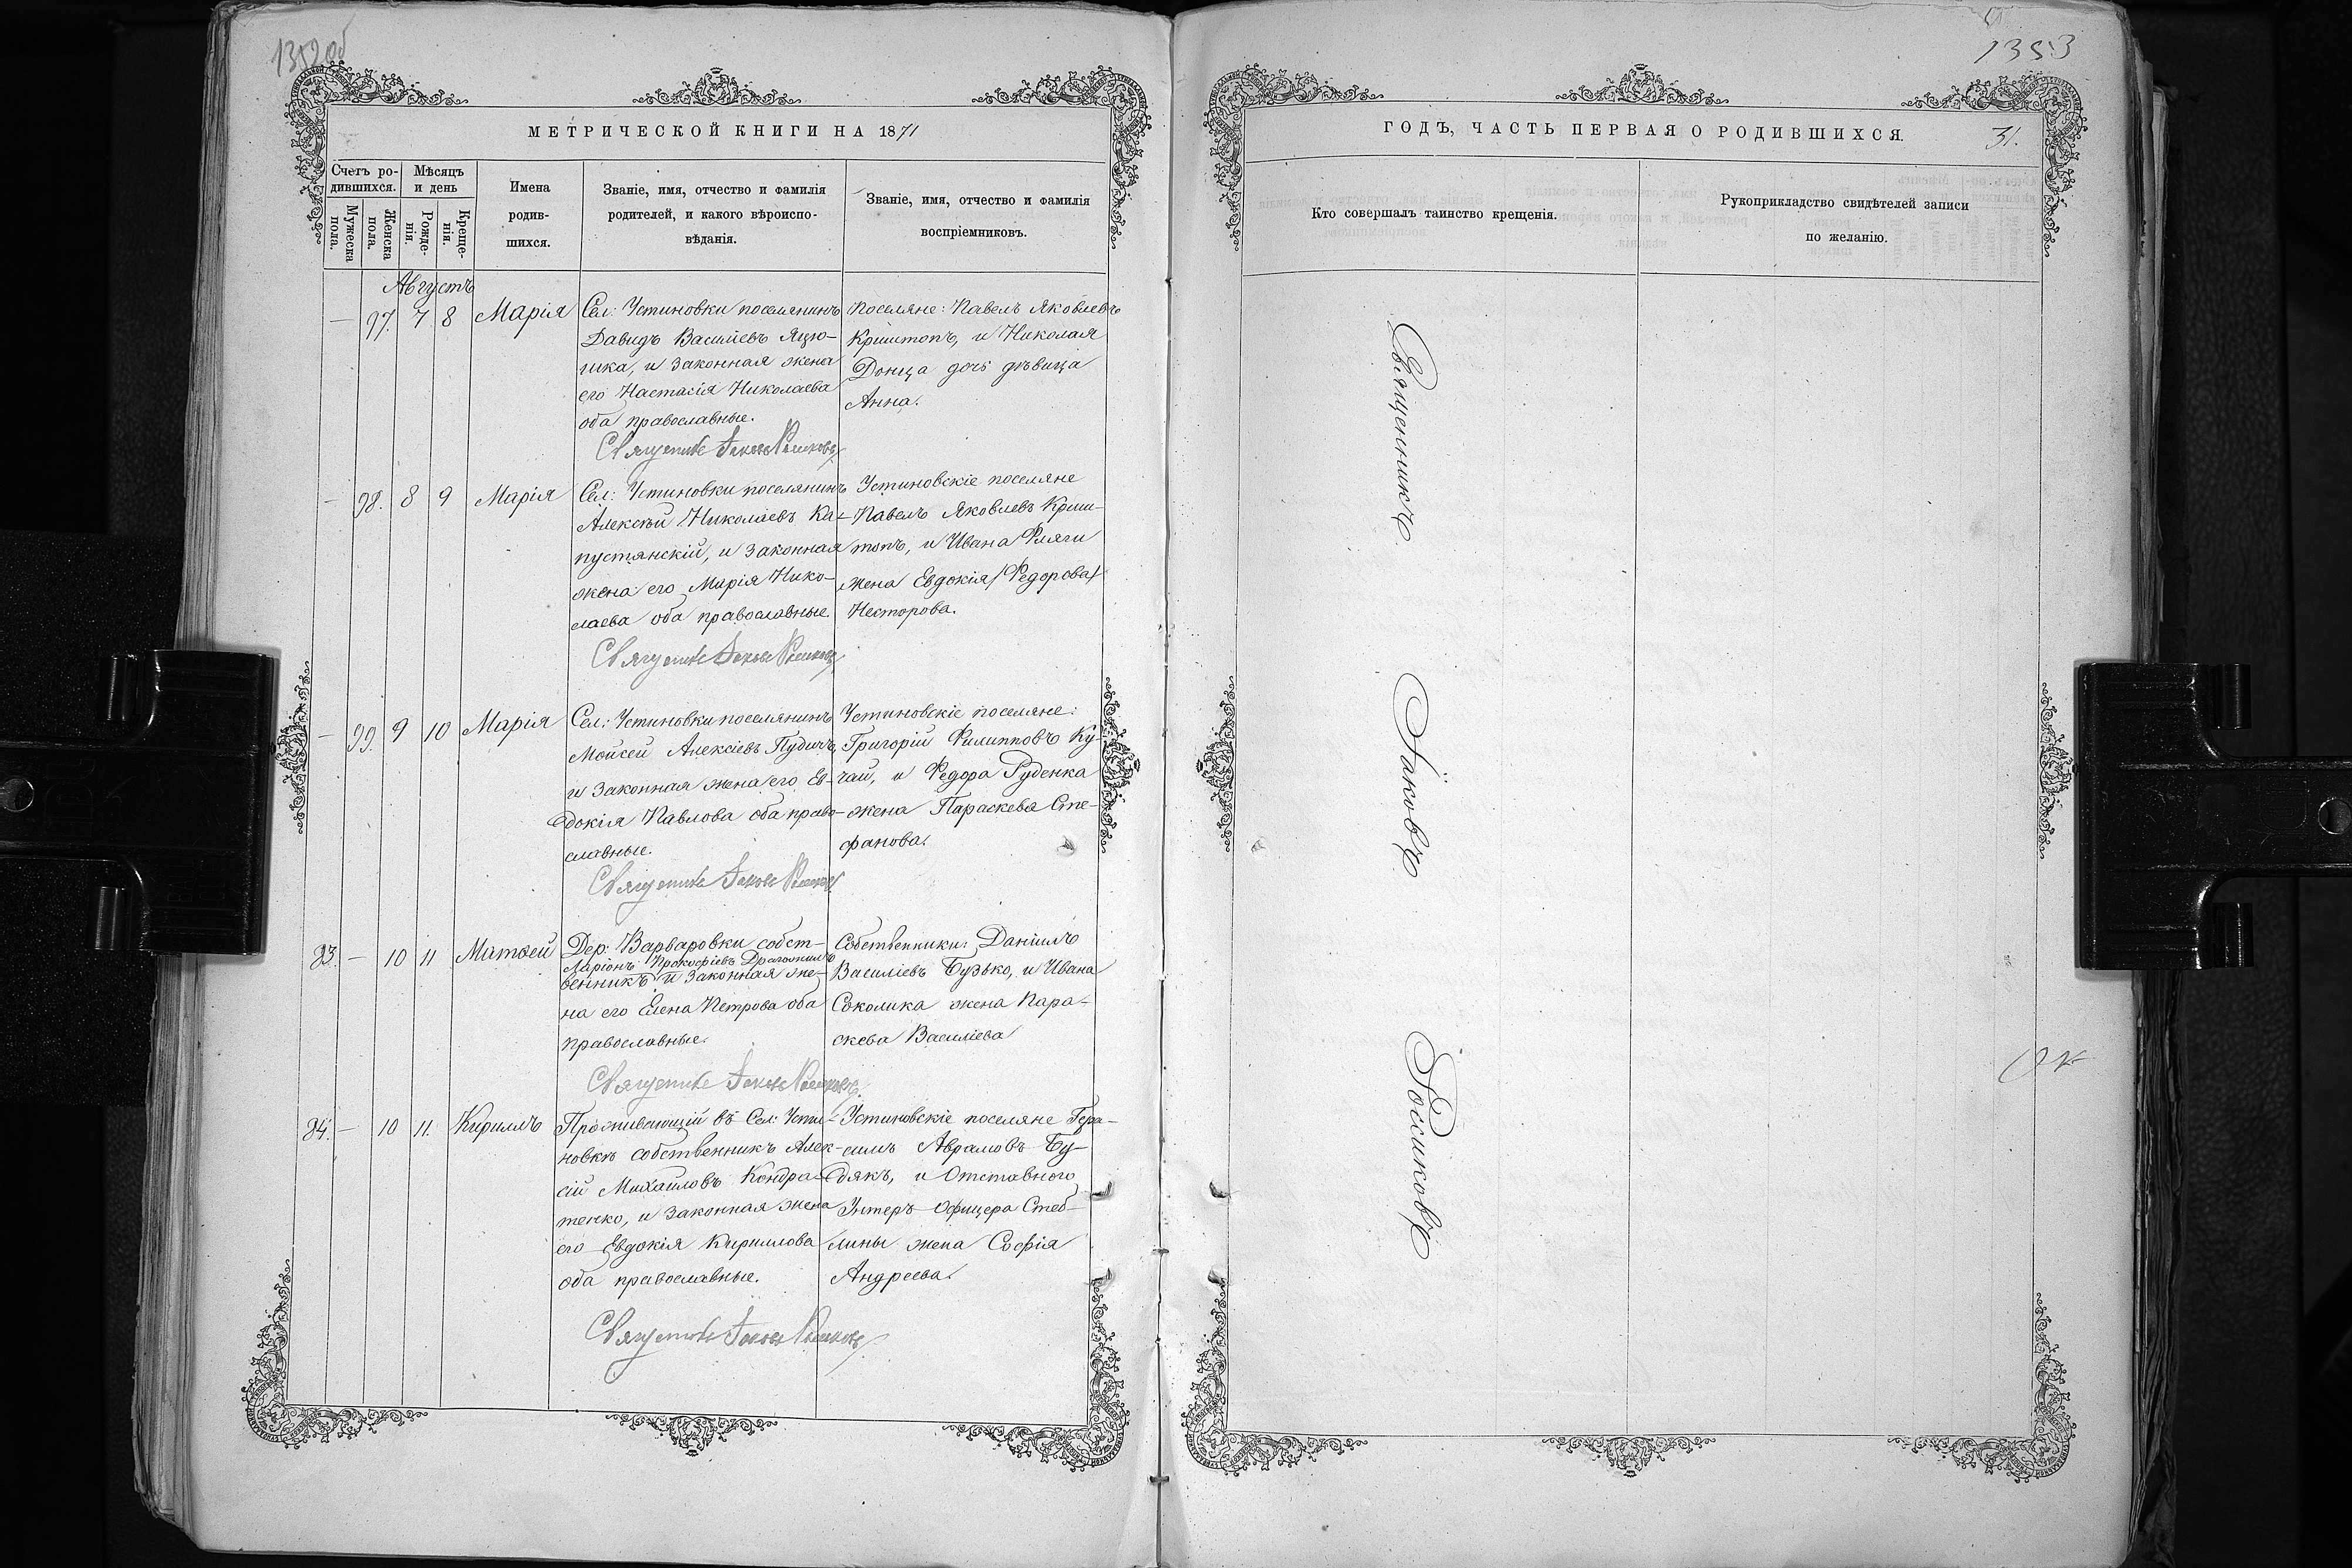 1352об
МЕТРИЧЕСКОЙ КНИГИ НА 1871
Счетъ ро-
дившихся.
Мѣсяцъ
и день
Мужеска
пола.
Женска
пола.
Рожде-
нія.
Креще-
нія.
Имена
родив-
шихся.
Званіе, имя, отчество и фамилія
родителей, и какого вѣроиспо-
вѣданія.
Званіе, имя, отчество и фамилія
воспріемниковъ.
Августъ
— 97. 7 8 Марія
Сел: Устиновки поселянинъ
Давидъ Васильевъ Яцю-
шка, и законная жена
его Настасія Николаева
оба православные.
Священникъ Іаковъ
Поселяне: Павелъ Яковлевъ
Криштопъ, и Николая
Донца дочь дѣвица
Анна.
— 98. 8 9 Марія
Сел: Устиновки поселянинъ
Алексѣй Николаевъ Ка-
пустянскій, и законная
жена его Марія Нико-
лаева оба православные.
Священникъ Іаковъ
Устиновскіе поселяне
Павелъ Яковлевъ Криш-
топъ, и Ивана Фляги
жена Евдокія (Федорова)
Несторова.
— 99. 9 10 Марія
Сел: Устиновки поселянинъ
Мойсей Алексіевъ Пудичъ,
и законная жена его Ев-
докія Павлова оба право-
славные.
Священникъ Іаковъ
Устиновскіе поселяне:
Григорій Филипповъ Ку-
чай, и Федора Руденка
жена Параскева Сте-
фанова.
83. — 10 11 Матвей
Дер: Варваровки собст-
Ларіонъ Прокофіевъ
венникъ и законная же-
на его Елена Петрова оба
православные.
Священникъ Іаковъ
Собственники: Даніилъ
Василіевъ Бузько, и Ивана
Соколика жена Пара-
скева Василіева
84. — 10 11. Кириллъ
Проживающій въ Сел: Усти-
новкѣ собственникъ Алек-
сій Михайловъ Кондра-
тенко, и законная жена
его Евдокія Кириллова
оба православные.
Священникъ Іаковъ
Устиновскіе поселяне Гера-
симъ Аврамовъ Бу-
дякъ, и Отставного
Унтеръ-Офицера Стеб-
лины жена Софія
Андреева.
1353
ГОДЪ, ЧАСТЬ ПЕРВАЯ О РОДИВШИХСЯ.
31.
Кто совершалъ таинство крещенія.
Рукоприкладство свидѣтелей записи
по желанію.
Священникъ Іаковъ